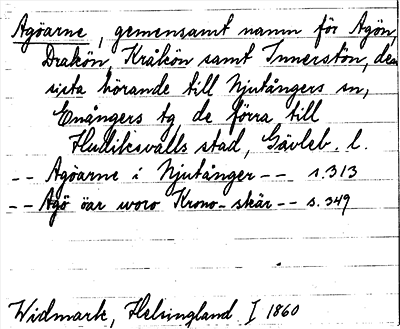 Agöarne, gemensamt namn för Agön,
Drakön, Kråkön samt Innerstön, de
sista hörande till Njutångers sn,
Enångers tg de förra till
Hudiksvalls stad, Gävleb. l.
-- Agöarne i Njutånger -- s. 313
-- Agö öar woro Krono-skär -- s. 349
Widmark, Helsingland I 1860